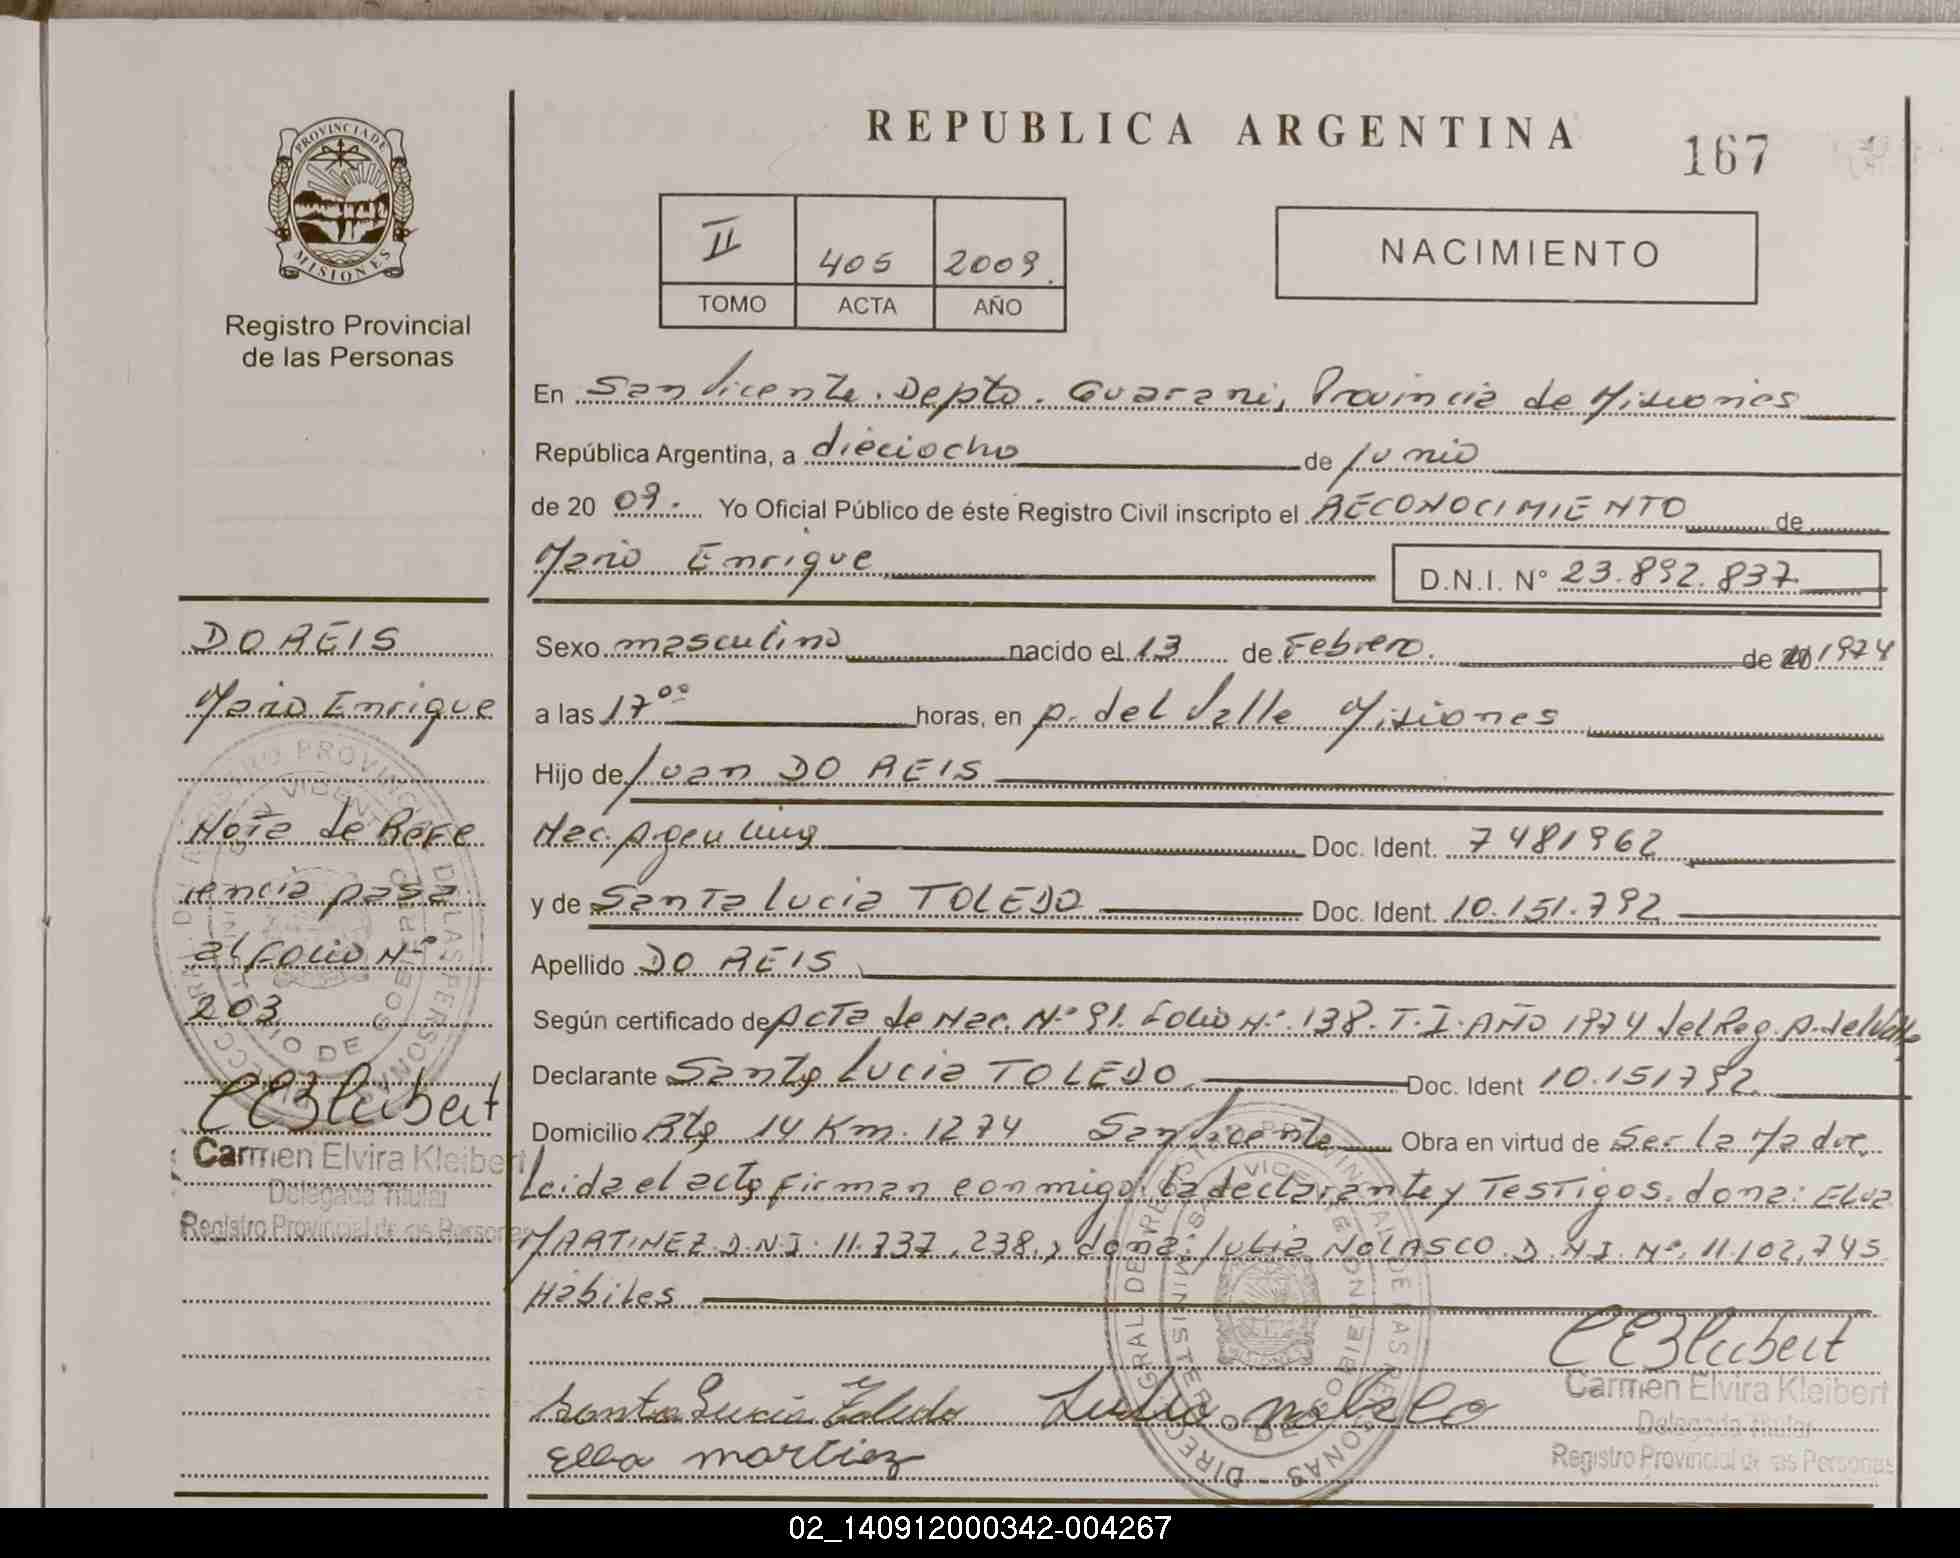 REPUBLICA ARGENTINA
167
PROVINCIA DE
MISIONES
Registro Provincial
de las Personas
II 405 2009.
TOMO ACTA AÑO
NACIMIENTO
En San Vicente. Depto. Guarani, Provincia de Misiones
República Argentina, a dieciocho de junio
de 20 09. Yo Oficial Público de éste Registro Civil inscripto el RECONOCIMIENTO de
Mario Enrique D.N.I. N° 23.892.837
Sexo masculino nacido el 13 de Febrero. de 20 1974
a las 17°° horas, en p. del Valle Misiones
Hijo de Juan DO REIS
Nac. Argentina Doc. Ident. 7481962
y de Santa Lucia TOLEDO Doc. Ident. 10.151.792
Apellido DO REIS
Según certificado de Acta de Nac. N° 91. Folio N°. 138. T. I. AÑO 1974 del Reg. p. del Valle
Declarante Santa Lucia TOLEDO Doc. Ident 10.151792
Domicilio Rta 14 Km 1274 San Vicente Obra en virtud de Ser la Madre.
Leida el acta firman conmigo la declarante y Testigos. dona: Elva
MARTINEZ D.N.I. 11.737.238., dona: Julia NOLASCO. D.N.I. N°. 11.102.745
Habiles
CEKleibert
Carmen Elvira Kleibert
Delegada Titular
Registro Provincial de las Personas
Santa Lucia Toledo
Ella martiez
DO REIS
Mario Enrique
Nota de Refe
rencia pasa
al Folio N°
203
CEKleibert
Carmen Elvira Kleibert
Delegada Titular
Registro Provincial de las Personas
02_140912000342-004267